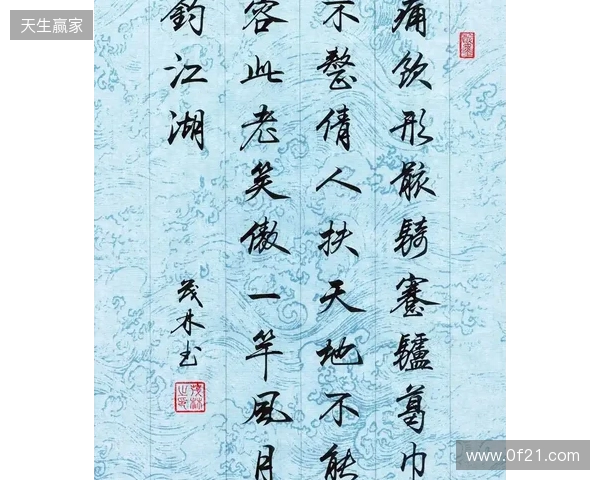 天生赢家
痛飲形骸騎蹇驢葛巾
不整倩人扶天地不能
容此老笑傲一竿風月
釣江湖
茂林书
www.0f21.com